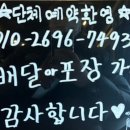 ☆단체예약환영☆
010-2696-7493
배달or포장 가
감사합니다♡